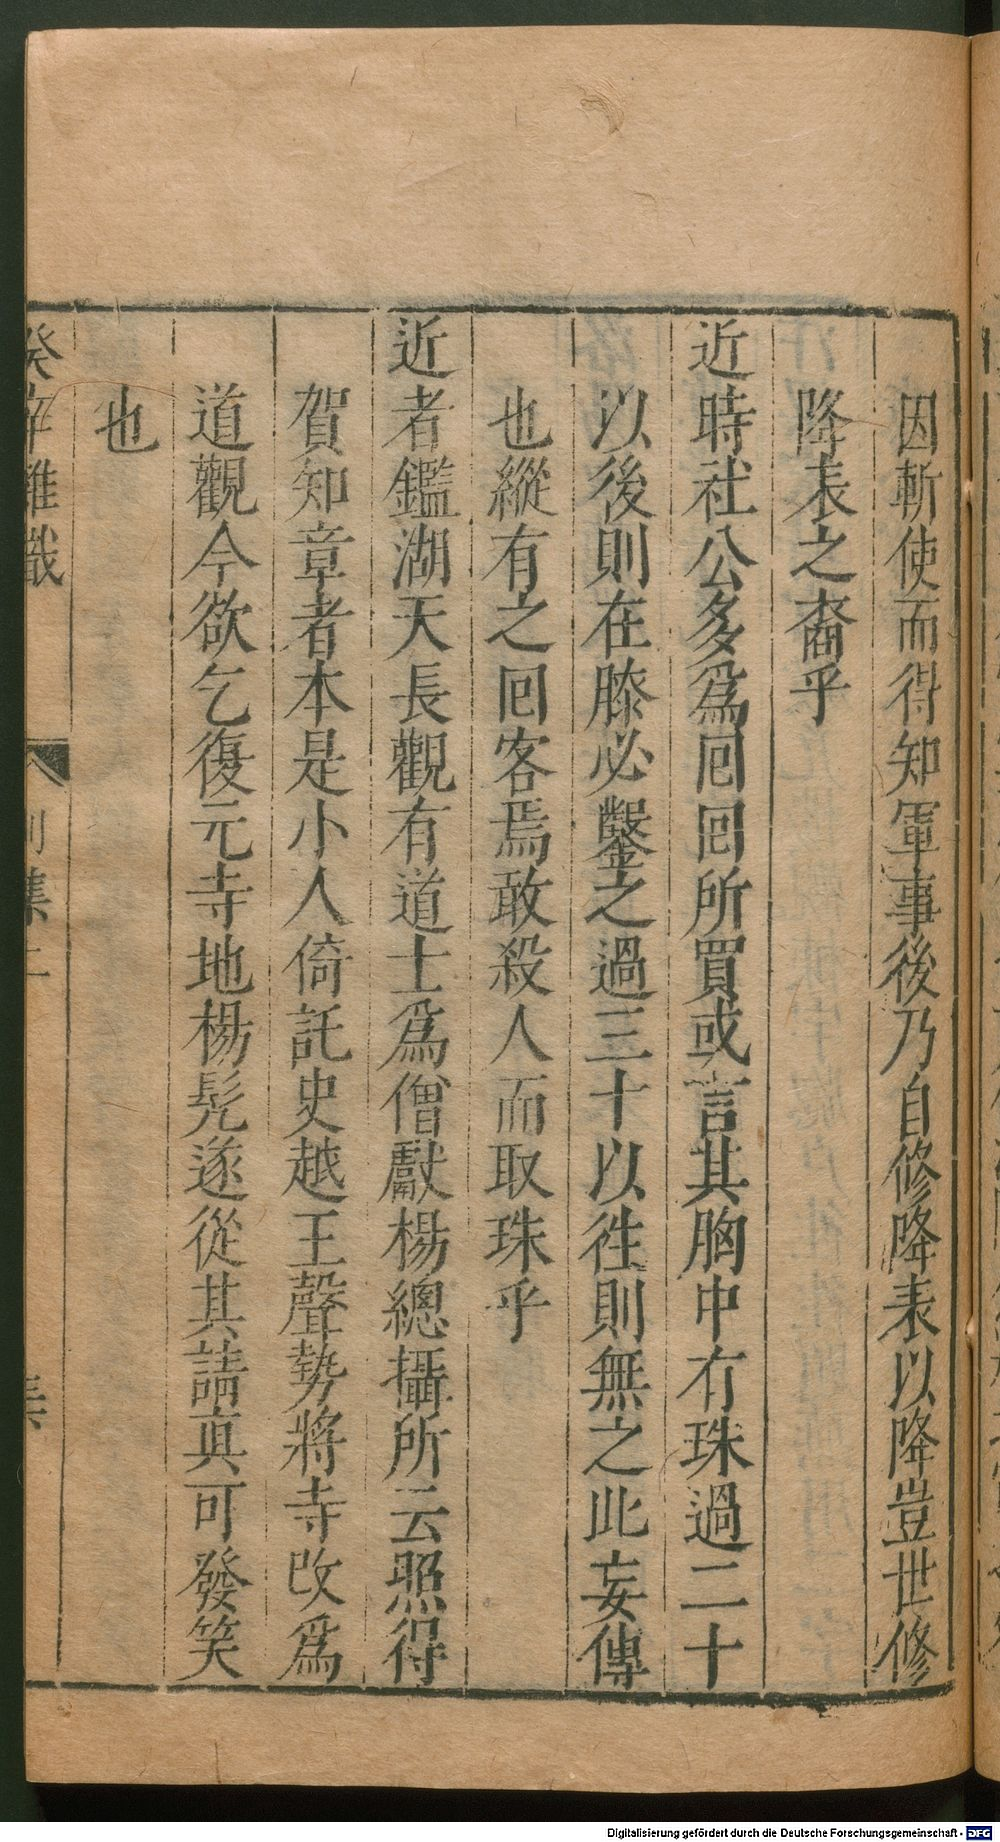 因斬使而得知軍事後乃自修降表以降豈世修
降表之裔乎
近時社公多爲囘囘所買或言其胸中有珠過二十
以後則在膝必鑿之過三十以徃則無之此妄傳
也縱有之囘客焉敢殺人而取珠乎
近者鑑湖天長觀有道士爲僧獻楊總攝所云照得
賀知章者本是小人倚託史越王聲勢將寺改爲
道觀今欲乞復元寺地楊髠遂從其請真可發笑
也
癸辛雜識
別集上
集
Digitalisierung gefördert durch die Deutsche Forschungsgemeinschaft - DFG